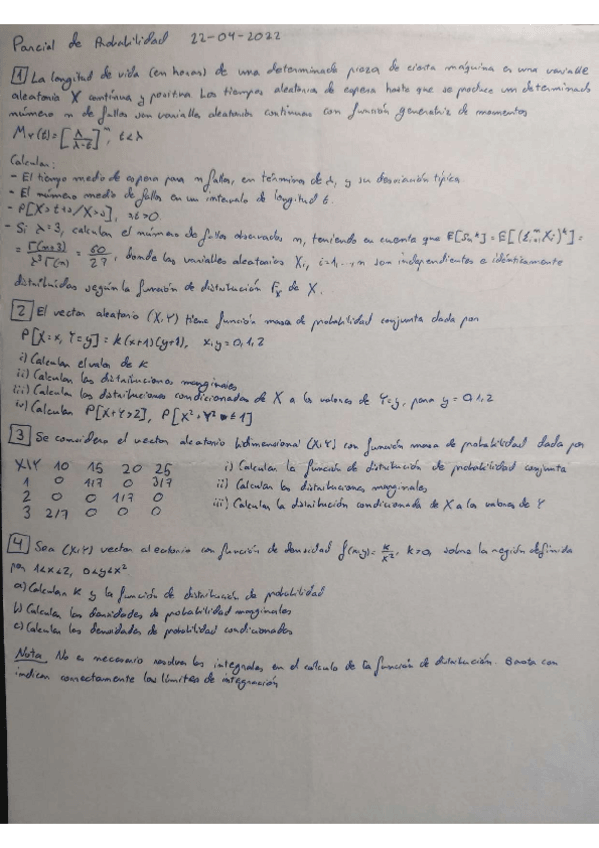 Parcial de Probabilidad 22-04-2022
1 La longitud de vida (en horas) de una determinada pieza de cierta máquina es una variable
aleatoria X continua y positiva. Los tiempos aleatorios de espera hasta que se produce un determinado
número n de fallos son variables aleatorias continuas con función generatriz de momentos
Mx(t) = [λ/(λ-t)]^n, t<λ
Calcular:
- El tiempo medio de espera para n fallos, en términos de λ, y su desviación típica
- El número medio de fallos en un intervalo de longitud t.
- P[X>t+s/X>s], s,t>0.
- Si λ=3, calcular el número de fallos observados n, teniendo en cuenta que E[Sn^k] = E[(Σ_{i=1}^n Xi)^k] =
= Γ(n+3)/(λ^3 Γ(n)) = 60/27, donde las variables aleatorias Xi, i=1,...,n son independientes e idénticamente
distribuidas según la función de distribución Fx de X.
2 El vector aleatorio (X,Y) tiene función masa de probabilidad conjunta dada por
P[X=x, Y=y] = k(x+1)(y+1), x,y=0,1,2
i) Calcular el valor de k
ii) Calcular las distribuciones marginales
iii) Calcular las distribuciones condicionadas de X a los valores de Y=y, para y=0,1,2
iv) Calcular P[X+Y>2], P[X²+Y² ≤ 1]
3 Se considera el vector aleatorio bidimensional (X,Y) con función masa de probabilidad dada por
X\Y 10 15 20 25 i) Calcular la función de distribución de probabilidad conjunta
1 0 1/7 0 3/7 ii) Calcular las distribuciones marginales
2 0 0 1/7 0 iii) Calcular la distribución condicionada de X a los valores de Y
3 2/7 0 0 0
4 Sea (X,Y) vector aleatorio con función de densidad f(x,y) = k/x², k>0, sobre la región definida
por 1<x<2, 0<y<x²
a) Calcular k y la función de distribución de probabilidad
b) Calcular las densidades de probabilidad marginales
c) Calcular las densidades de probabilidad condicionadas
Nota No es necesario resolver las integrales en el cálculo de la función de distribución. Basta con
indicar correctamente los límites de integración